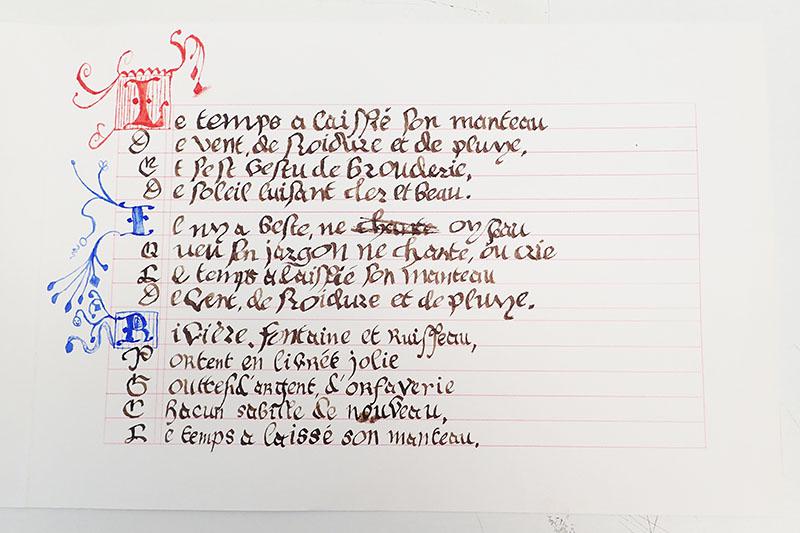 Le temps a laissié son manteau
De vent, de froidure et de pluye,
Et sest vestu de brouderie,
De soleil luisant cler et beau.
Il ny a beste, ne oyseau
Queu son jargon ne chante, ou crie
Le temps a laissié son manteau
De vent, de froidure et de pluye.
Rivière, fontaine et ruisseau,
Portent en livrée jolie
Gouttes d'argent, d'orfaverie
Chacun sabille de nouveau,
Le temps a laissé son manteau.